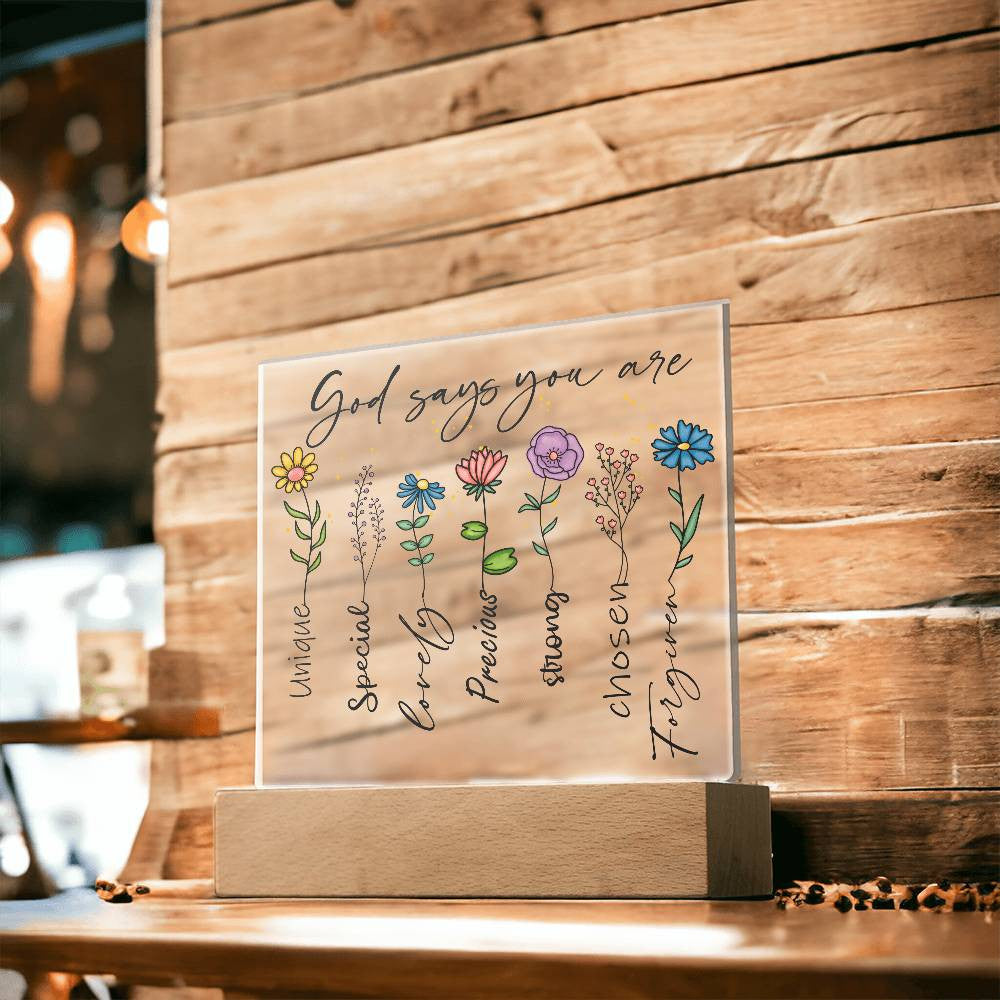 God says you are
Unique
Special
Lovely
Precious
strong
chosen
Forgiven